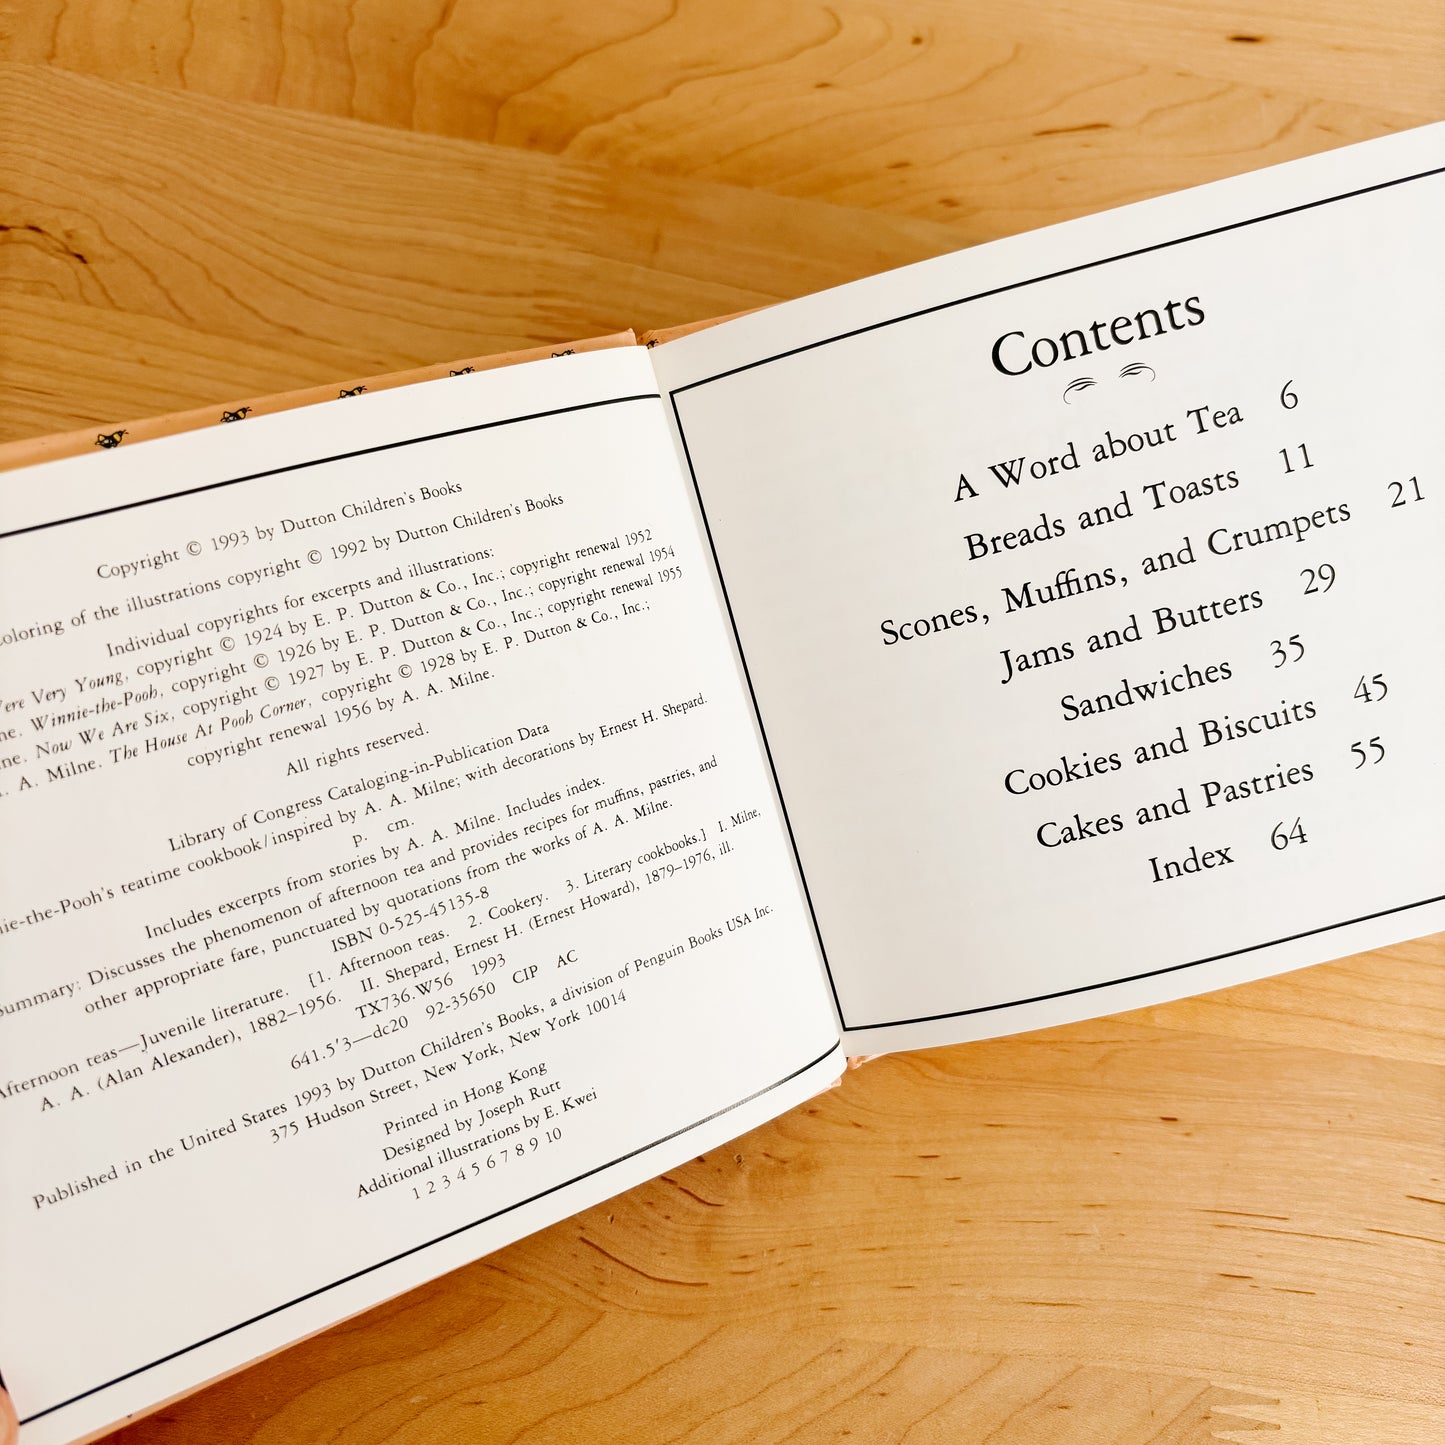 Copyright © 1993 by Dutton Children's Books
of the illustrations copyright © 1992 by Dutton Children's Books
Individual copyrights for excerpts and illustrations:
Very Young, copyright © 1924 by E. P. Dutton & Co., Inc.; copyright renewal 1952
Winnie-the-Pooh, copyright © 1926 by E. P. Dutton & Co., Inc.; copyright renewal 1954
Now We Are Six, copyright © 1927 by E. P. Dutton & Co., Inc.; copyright renewal 1955
A. Milne. The House At Pooh Corner, copyright © 1928 by E. P. Dutton & Co., Inc.;
copyright renewal 1956 by A. A. Milne.
All rights reserved.
Library of Congress Cataloging-in-Publication Data
teatime cookbook/inspired by A. A. Milne; with decorations by Ernest H. Shepard.
p. cm.
Includes excerpts from stories by A. A. Milne. Includes index.
Summary: Discusses the phenomenon of afternoon tea and provides recipes for muffins, pastries, and
other appropriate fare, punctuated by quotations from the works of A. A. Milne.
ISBN 0-525-45135-8
Afternoon teas—Juvenile literature. [1. Afternoon teas. 2. Cookery. 3. Literary cookbooks.] I. Milne,
A. A. (Alan Alexander), 1882–1956. II. Shepard, Ernest H. (Ernest Howard), 1879–1976, ill.
TX736.W56 1993
641.5'3—dc20 92-35650 CIP AC
Published in the United States 1993 by Dutton Children's Books, a division of Penguin Books USA Inc.
375 Hudson Street, New York, New York 10014
Printed in Hong Kong
Designed by Joseph Rutt
Additional illustrations by E. Kwei
1 2 3 4 5 6 7 8 9 10
Contents
A Word about Tea 6
Breads and Toasts 11
Scones, Muffins, and Crumpets 21
Jams and Butters 29
Sandwiches 35
Cookies and Biscuits 45
Cakes and Pastries 55
Index 64